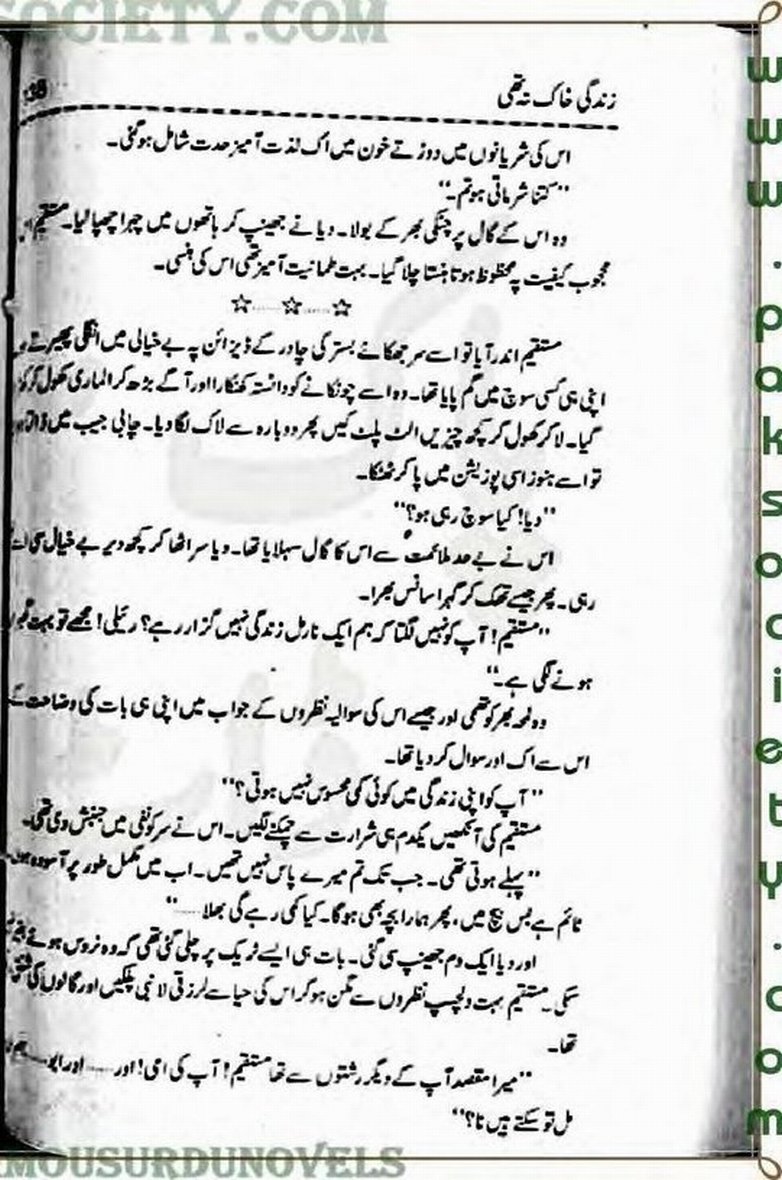 SOCIETY.COM
زندگی خاک نہ تھی
اس کی شریانوں میں دوڑتے خون میں اک لذت آمیز حدت شامل ہو گئی۔
’’کتنا شرماتی ہو تم۔‘‘
وہ اس کے گال پر چٹکی بھر کے بولا۔ دیا نے جھینپ کر ہاتھوں میں چہرا چھپا لیا۔ مستقیم اس
محجوب کیفیت پہ محظوظ ہوتا ہنستا چلا گیا۔ بہت طمانیت آمیز تھی اس کی ہنسی۔
☆.....☆.....☆
مستقیم اندر آیا تو اسے سر جھکائے بستر کی چادر کے ڈیزائن پہ بے خیالی میں انگلی پھیرتے
اپنی ہی کسی سوچ میں گم پایا تھا۔ وہ اسے چونکانے کو دانستہ کھنکارا اور آگے بڑھ کر الماری کھول کر
گیا۔ لاکر کھول کر کچھ چیزیں الٹ پلٹ کیں پھر دوبارہ سے لاک لگا دیا۔ چابی جیب میں
تو اسے ہنوز اسی پوزیشن میں پا کر ٹھٹکا۔
’’دیا! کیا سوچ رہی ہو؟‘‘
اس نے بے حد ملائمت سے اس کا گال سہلایا تھا۔ دیا سر اٹھا کر کچھ دیر بے خیال سی اسے
رہی۔ پھر جیسے تھک کر گہرا سانس بھرا۔
’’مستقیم! آپ کو نہیں لگتا کہ ہم ایک نارمل زندگی نہیں گزار رہے؟ رئیلی! مجھے تو بہت
ہونے لگی ہے۔‘‘
وہ لمحہ بھر کو تھمی اور جیسے اس کی سوالیہ نظروں کے جواب میں اپنی ہی بات کی وضاحت کے
اس سے اک اور سوال کر دیا تھا۔
’’آپ کو اپنی زندگی میں کوئی کمی محسوس نہیں ہوتی؟‘‘
مستقیم کی آنکھیں یکدم ہی شرارت سے چمکنے لگیں۔ اس نے سر کو نفی میں جنبش دی تھی۔
’’پہلے ہوتی تھی۔ جب تک تم میرے پاس نہیں تھیں۔ اب میں مکمل طور پر آسودہ ہوں۔
ٹائم ہے بس بیچ میں، پھر ہمارا بچہ بھی ہو گا۔ کیا کمی رہے گی بھلا.....‘‘
اور دیا ایک دم جھینپ سی گئی۔ بات ہی ایسے ٹریک پر چلی گئی تھی کہ وہ نروس ہوئے بغیر نہ
سکی۔ مستقیم بہت دلچسپ نظروں سے مگن ہو کر اس کی حیا سے لرزتی لانبی پلکیں اور گالوں کی
تھا۔
’’میرا مقصد آپ کے دیگر رشتوں سے تھا مستقیم! آپ کی امی! اور..... اور ابو..... ہم
مل تو سکتے ہیں نا؟‘‘
www.paksociety.com
MOUSURDUNOVELS